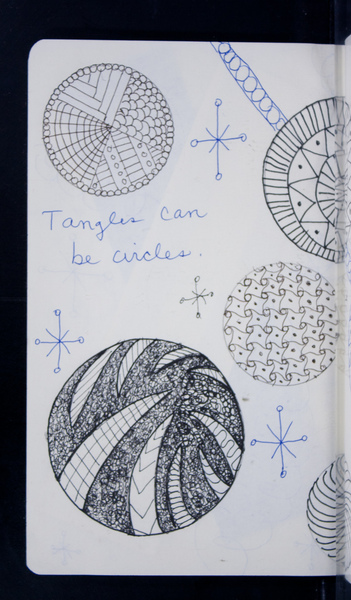 Tangles can
be circles.